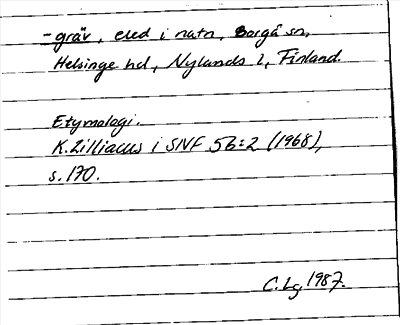 -gräv, eled i natn, Borgå sn,
Helsinge hd, Nylands l, Finland.
Etymologi.
K. Zilliacus i SNF 56:2 (1968),
s. 170.
C. Lg 1987.